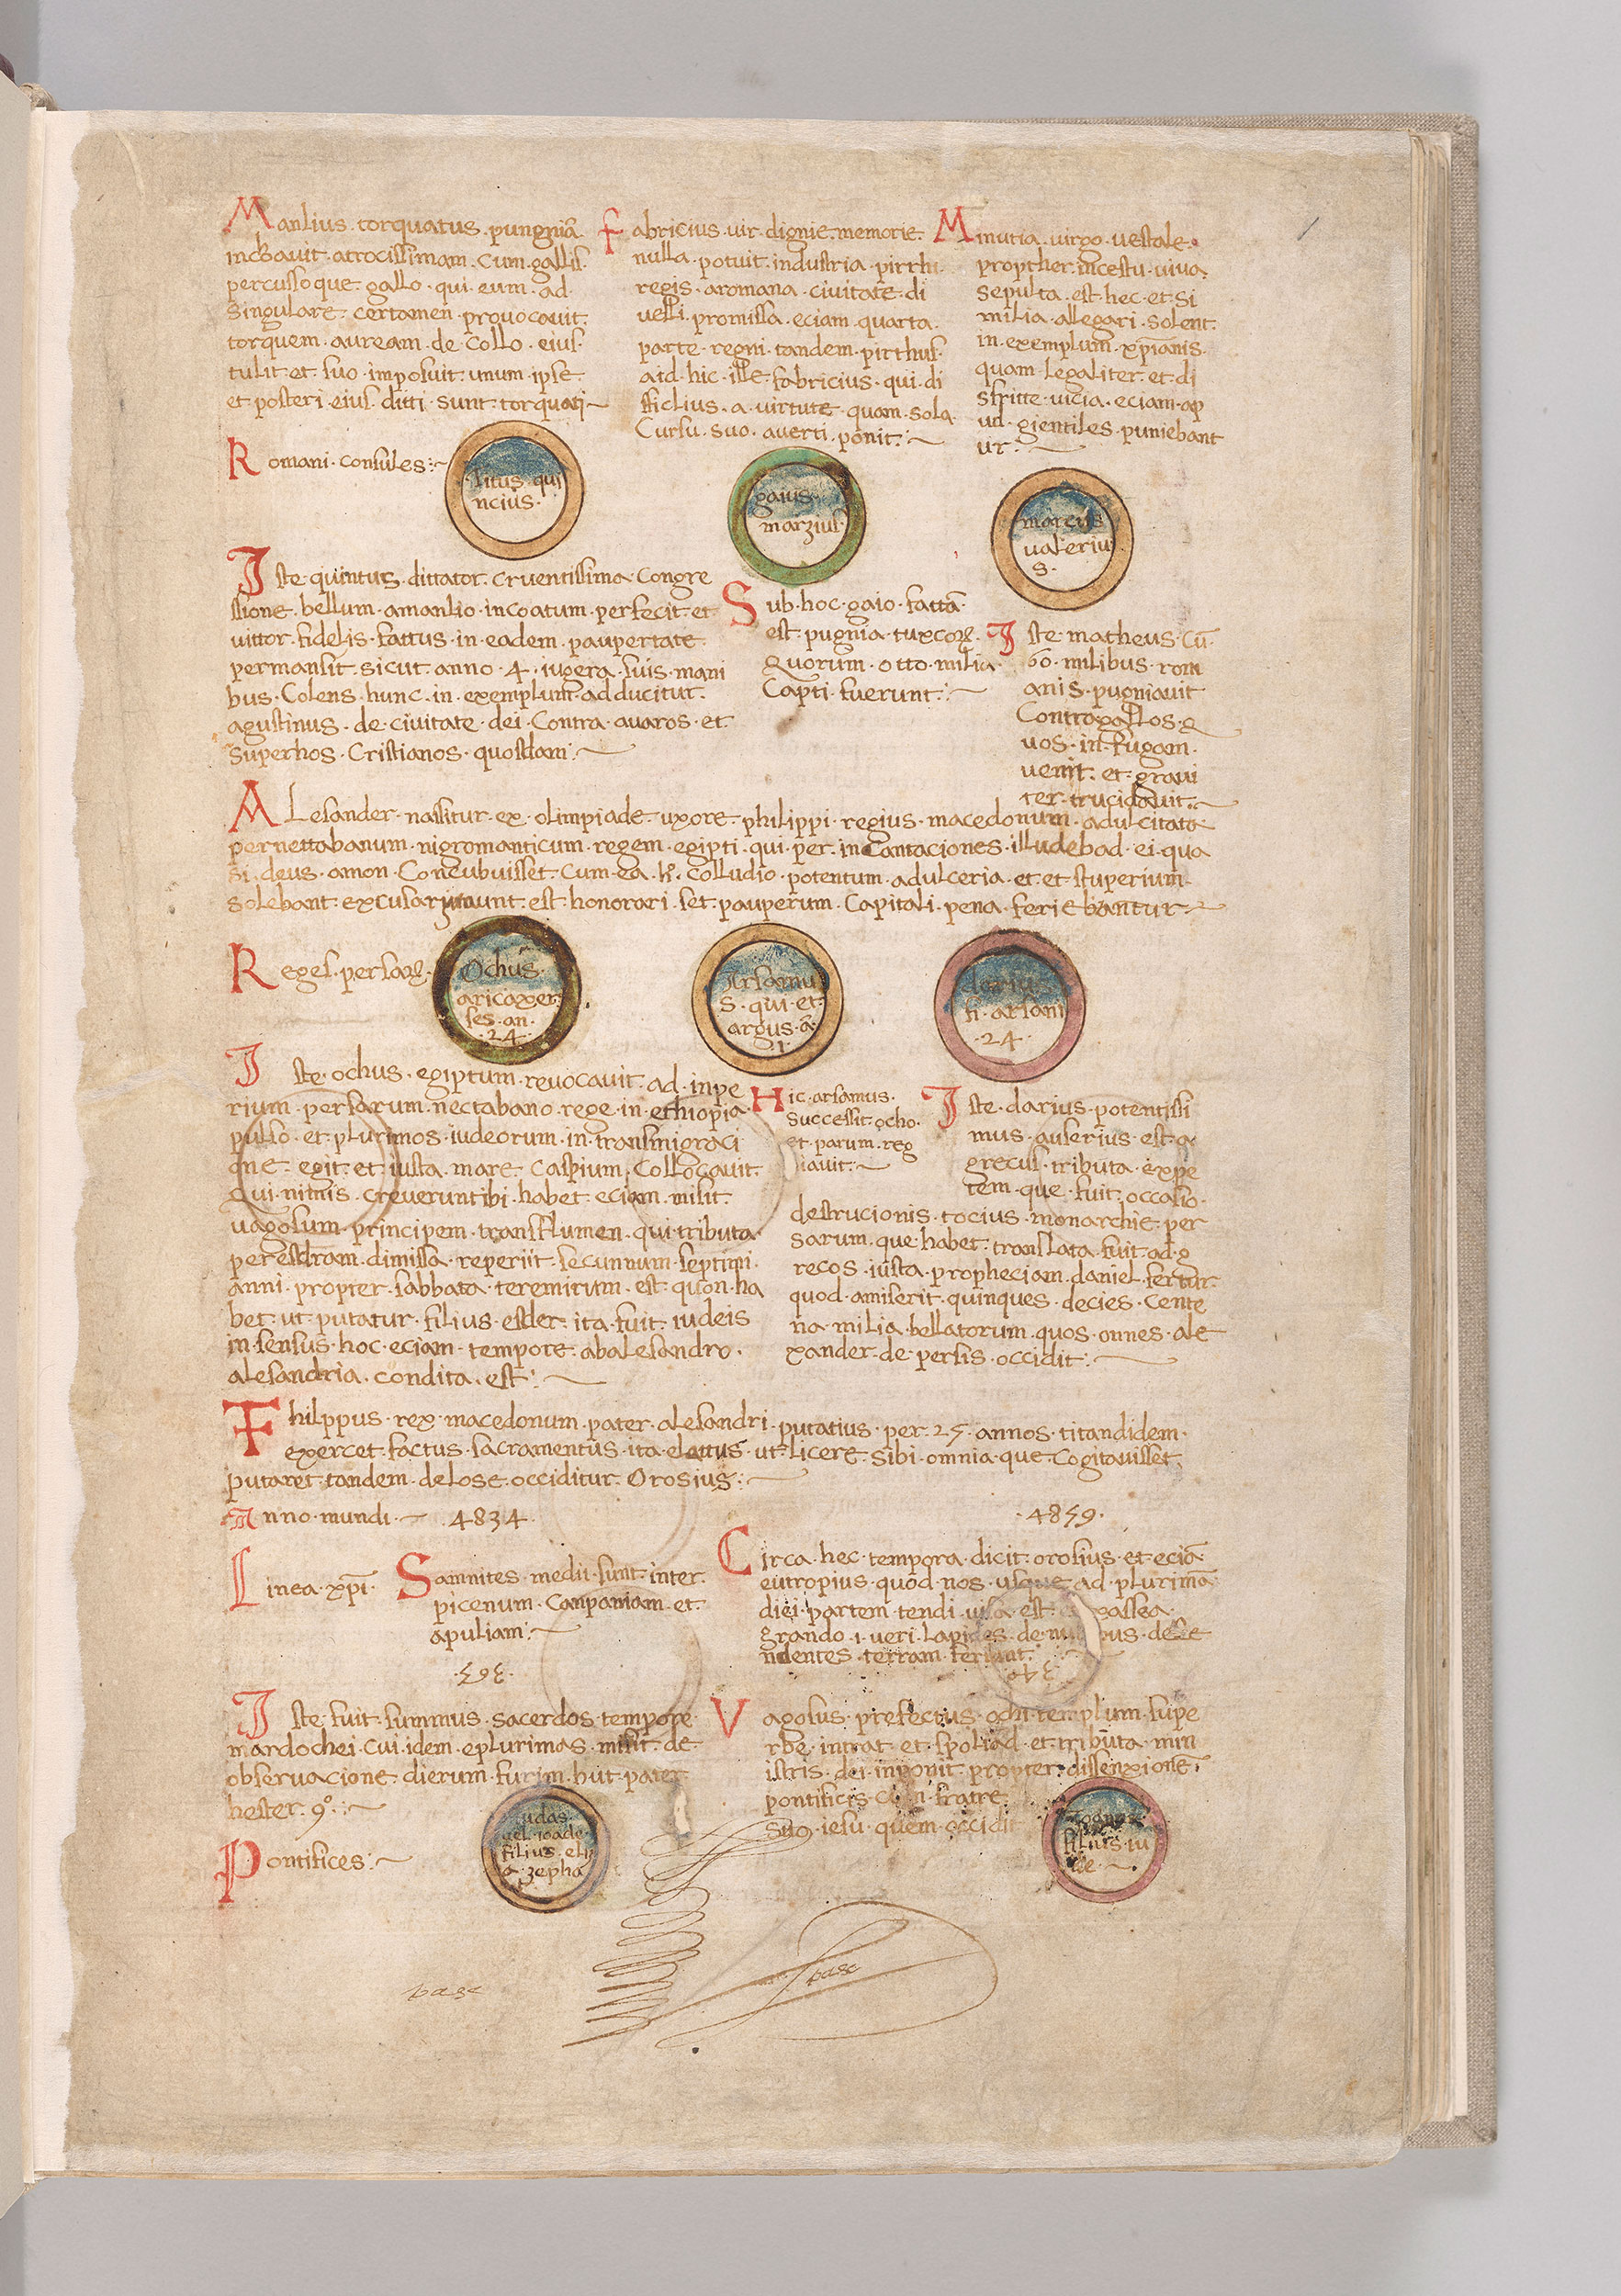 Manlius · torquatus · pungnia
incoavit · atrocissimam · cum · gallis ·
percusso que · gallo · qui · eum · ad ·
singulare · certamen · provocavit ·
torquem · auream · de · collo · eius ·
tulit · et · suo · imposuit · unum · ipse ·
et posteri · eius · ditti · sunt · torquati
fabricius · vir · dignie · memorie ·
nulla · potuit · industria · pirrhi ·
regis · aromana · civitate · di
velli · promissa · eciam · quarta ·
parte · regni · tandem · pirrhus ·
aid · hic · ille · fabricius · qui · di
fficlius · a · virtute · quam · sola ·
Cursu · suo · averti · ponit ·
Minutia · virgo · vestale ·
propther · incestu · viva ·
sepulta · est · hec · et · si
milia · allegari · solent ·
in · exemplum · xpianis ·
quam · legaliter · et · di
stritte · vicia · eciam · ap
ud · gientiles · puniebant
ur ·
Romani · consules ·
Titus · qui
ncius ·
gaius ·
marzius
marcus
valeriu
s ·
Iste · quintus · dittator · cruentissima · congre
ssione · bellum · amanlio · incoatum · perfecit · et ·
vittor · fidelis · fattus · in · eadem · paupertate ·
permansit · sicut · anno · 4 · iugera · suis · mani
bus · Colens · hunc · in · exemplum · adducitur ·
agustinus · de · civitate · dei · Contra · avaros · et ·
superhos · Cristianos · quosdam ·
Sub · hoc · gaio · fatta ·
est · pugnia · tuxcoꝝ ·
quorum · otto · milia ·
Capti · fuerunt ·
Iste · matheus · cū ·
60 · milibus · rom
anis · pugniavit
Contragallos · q
uos · in · fugam ·
venit · et · gravi
ter · trucidavit ·
Alesander · nassitur · ex · olimpiade · uxore · philippi · regius · macedonum · adulcitata
pernettabanum · nigromanticum · regem · egipti · qui · per · incantaciones · illudebad · ei · qua
si · deus · amon · Concubuisset · cum · ea · colludio · potentum · adulceria · et · et · stuperium ·
solebant · excusari · est · honorari · set · pauperum · Capitali · pena · feriebantur ·
Reges · persaꝝ ·
Ochus ·
aricaxer
ses · an ·
· 24 ·
Arsamu
s · qui · et ·
argus · ā ·
· 1 ·
darius
fi · arsani
· 24 ·
Iste · ochus · egiptum · revocavit · ad · inpe
rium · persarum · nectabano · rege · in · ethiopia ·
pulso · et · plurimos · iudeorum · in · transmigraci
one · egit · et · iusta · mare · Caspium · Collocavit ·
Qui · nimis · creveruntibi · habet · eciam · misit ·
vagosum · principem · transflumen · qui · tributa ·
peresdram · dimissa · reperiit · secunnum · septimi ·
anni · propter · sabbata · teremitum · est · quon · ha
bet · ut · putatur · filius · esder · ita · fuit · iudeis
in · sensus · hoc · eciam · tempore · abalesandro ·
alesandria · condita · est ·
Hic · arsamus ·
successit · ocho ·
et · parum · reg
iavit ·
Iste · darius · potentissi
mus · auserius · est · a ·
grecus · tributa · expe
tem · que · fuit · occasio ·
destrucionis · tocius · monarchie · per
sarum · que · habet · translata · fuit · ad · g
recos · iusta · propheciam · daniel · fertur ·
quod · amiserit · quinques · decies · cente
na · milia · bellatorum · quos · onnes · ale
xander · de · persis · occidit ·
Fhilppus · rex · macedonum · pater · alesandri · putatius · per · 25 · annos · titandidem ·
exercet · factus · sacramentus · ita · elattus · ut · licere · sibi · omnia · que · Cogitavisset ·
putaret · tandem · delose · occiditur · Orosius ·
Anno · mundi · 4834 ·
· 4859 ·
Linea · xpi ·
Samnites · medii · sunt · inter ·
picenum · Companiam · et ·
apuliam ·
Circa · hec · tempora · dicit · orosius · et · eciā ·
eutropius · quod · nos · usque · ad · plurimā
diei · partem · tendi · visa · est · saxea ·
grando · i · veri · lapides · de · nubibus · desce
ndentes · terram · feriant ·
· 365 ·
340
Iste · fuit · summus · sacerdos · tempore ·
mardochei · cui · idem · eplurimas · misit · de ·
observacione · dierum · furim · hut · pater
hester · 9° ·
Vagosus · prefectus · ochi · templum · supe
rbe · intrat · et · spoliad · et · tributa · min
istris · dei · inponit · propter · dissenxione ·
pontificis · fratre
suo · iesu · quem · occidit
Pontifices ·
udas ·
vel · ioade ·
filius · eli
a · zepha
filius · iu
de ·
base
base